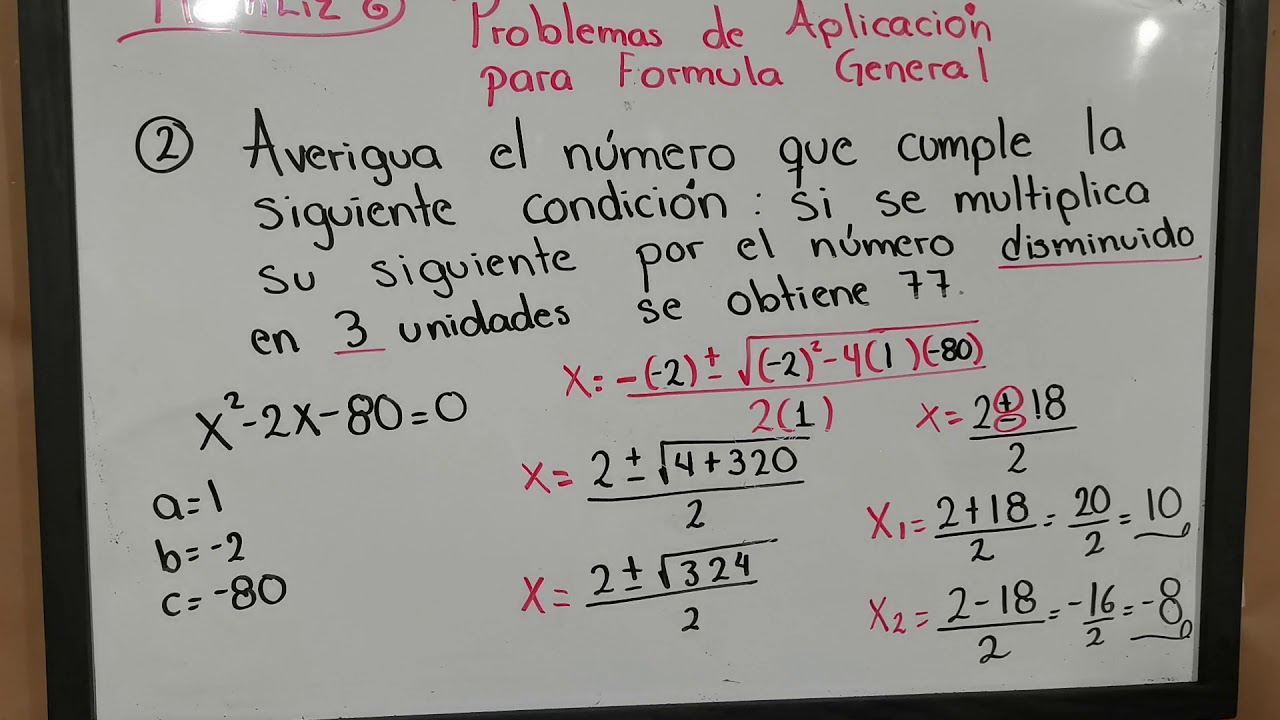 Problemas de Aplicación
para Formula General
② Averigua el número que cumple la
siguiente condición: si se multiplica
su siguiente por el número disminuido
en 3 unidades se obtiene 77.
x²-2x-80=0
a=1
b=-2
c=-80
x=-(-2)±√(-2)²-4(1)(-80)
2(1)
x=2±√4+320
2
x=2±√324
2
x=2±18
2
x₁=2+18=20=10
2 2
x₂=2-18=-16=-8
2 2